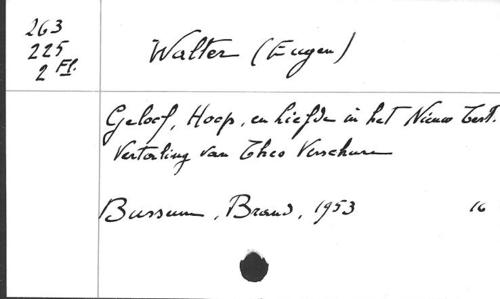 263
225
2 Fl.
Walter (Eugen)
Geloof, Hoop, en liefde in het Nieuw Test.
Vertaling van Theo Verschuren
Bussum, Brand, 1953 16